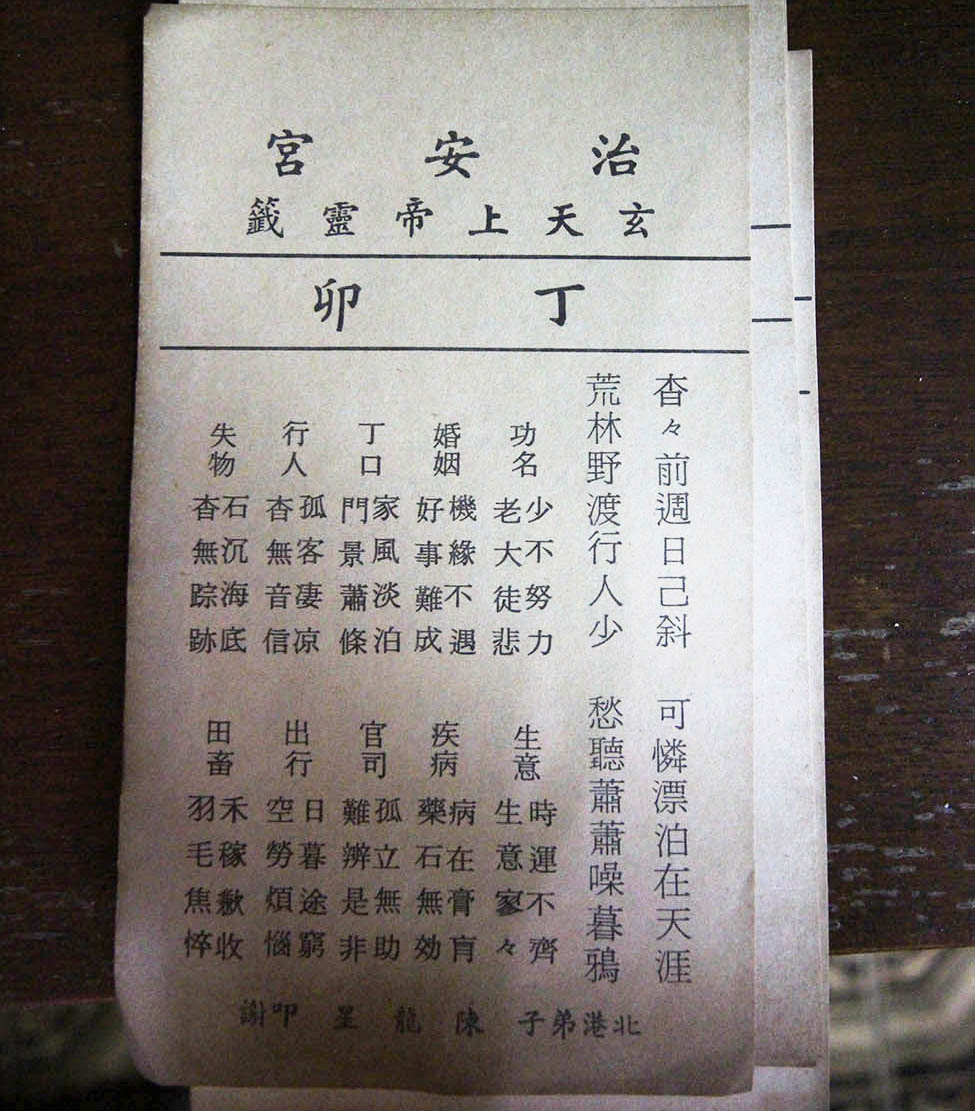 治安宮
玄天上帝靈籤
丁卯
杳々前週日己斜
可憐漂泊在天涯
荒林野渡行人少
愁聽蕭蕭噪暮鴉
功名
少不努力
老大徒悲
婚姻
機緣不遇
好事難成
丁口
家風淡泊
門景蕭條
行人
孤客凄凉
杳無音信
失物
石沉海底
杳無踪跡
生意
時運不齊
生意寥々
疾病
病在膏肓
藥石無効
官司
孤立無助
難辨是非
出行
日暮途窮
空勞煩惱
田畜
禾稼歉收
羽毛焦悴
北港弟子陳龍呈叩謝